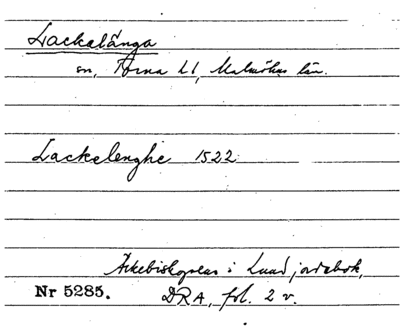 Lackalänga
sn, Torna hd, Malmöhus län.
Lackelenghe 1522
Ärkebiskopens i Lund jordebok,
Nr 5285. DRA, fol. 2 v.